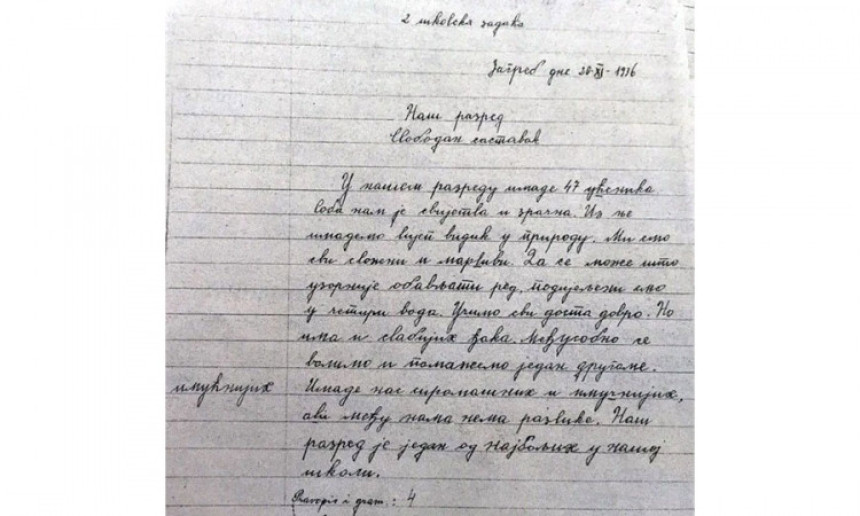 2 школска задаћа
Загреб дне 28-XI-1936
Наш разред
Слободан саставак
У нашем разреду имаде 47 ученика
Соба нам је свијетла и зрачна. Из ње
имадемо лијеп видик у природу. Ми смо
сви сложни и марљиви. Да се може што
узорније обављати ред, подијељени смо
у четири вода. Учимо сви доста добро. Но
има и слабијих ђака. Међусобно се
волимо и помажемо један другоме.
имућнијих
Имаде нас сиромашних и имучнијих,
али међу нама нема разлике. Наш
разред је један од најбољих у нашој
школи.
: 4